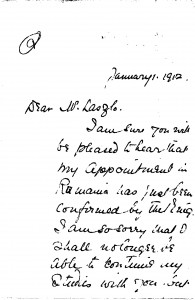 January 1. 1912.
Dear Mr. Laszlo.
I am sure you will
be pleased to hear that
my appointment in
Rumania has just been
confirmed by the King.
I am so sorry that I
shall no longer be
able to continue my
studies with you but